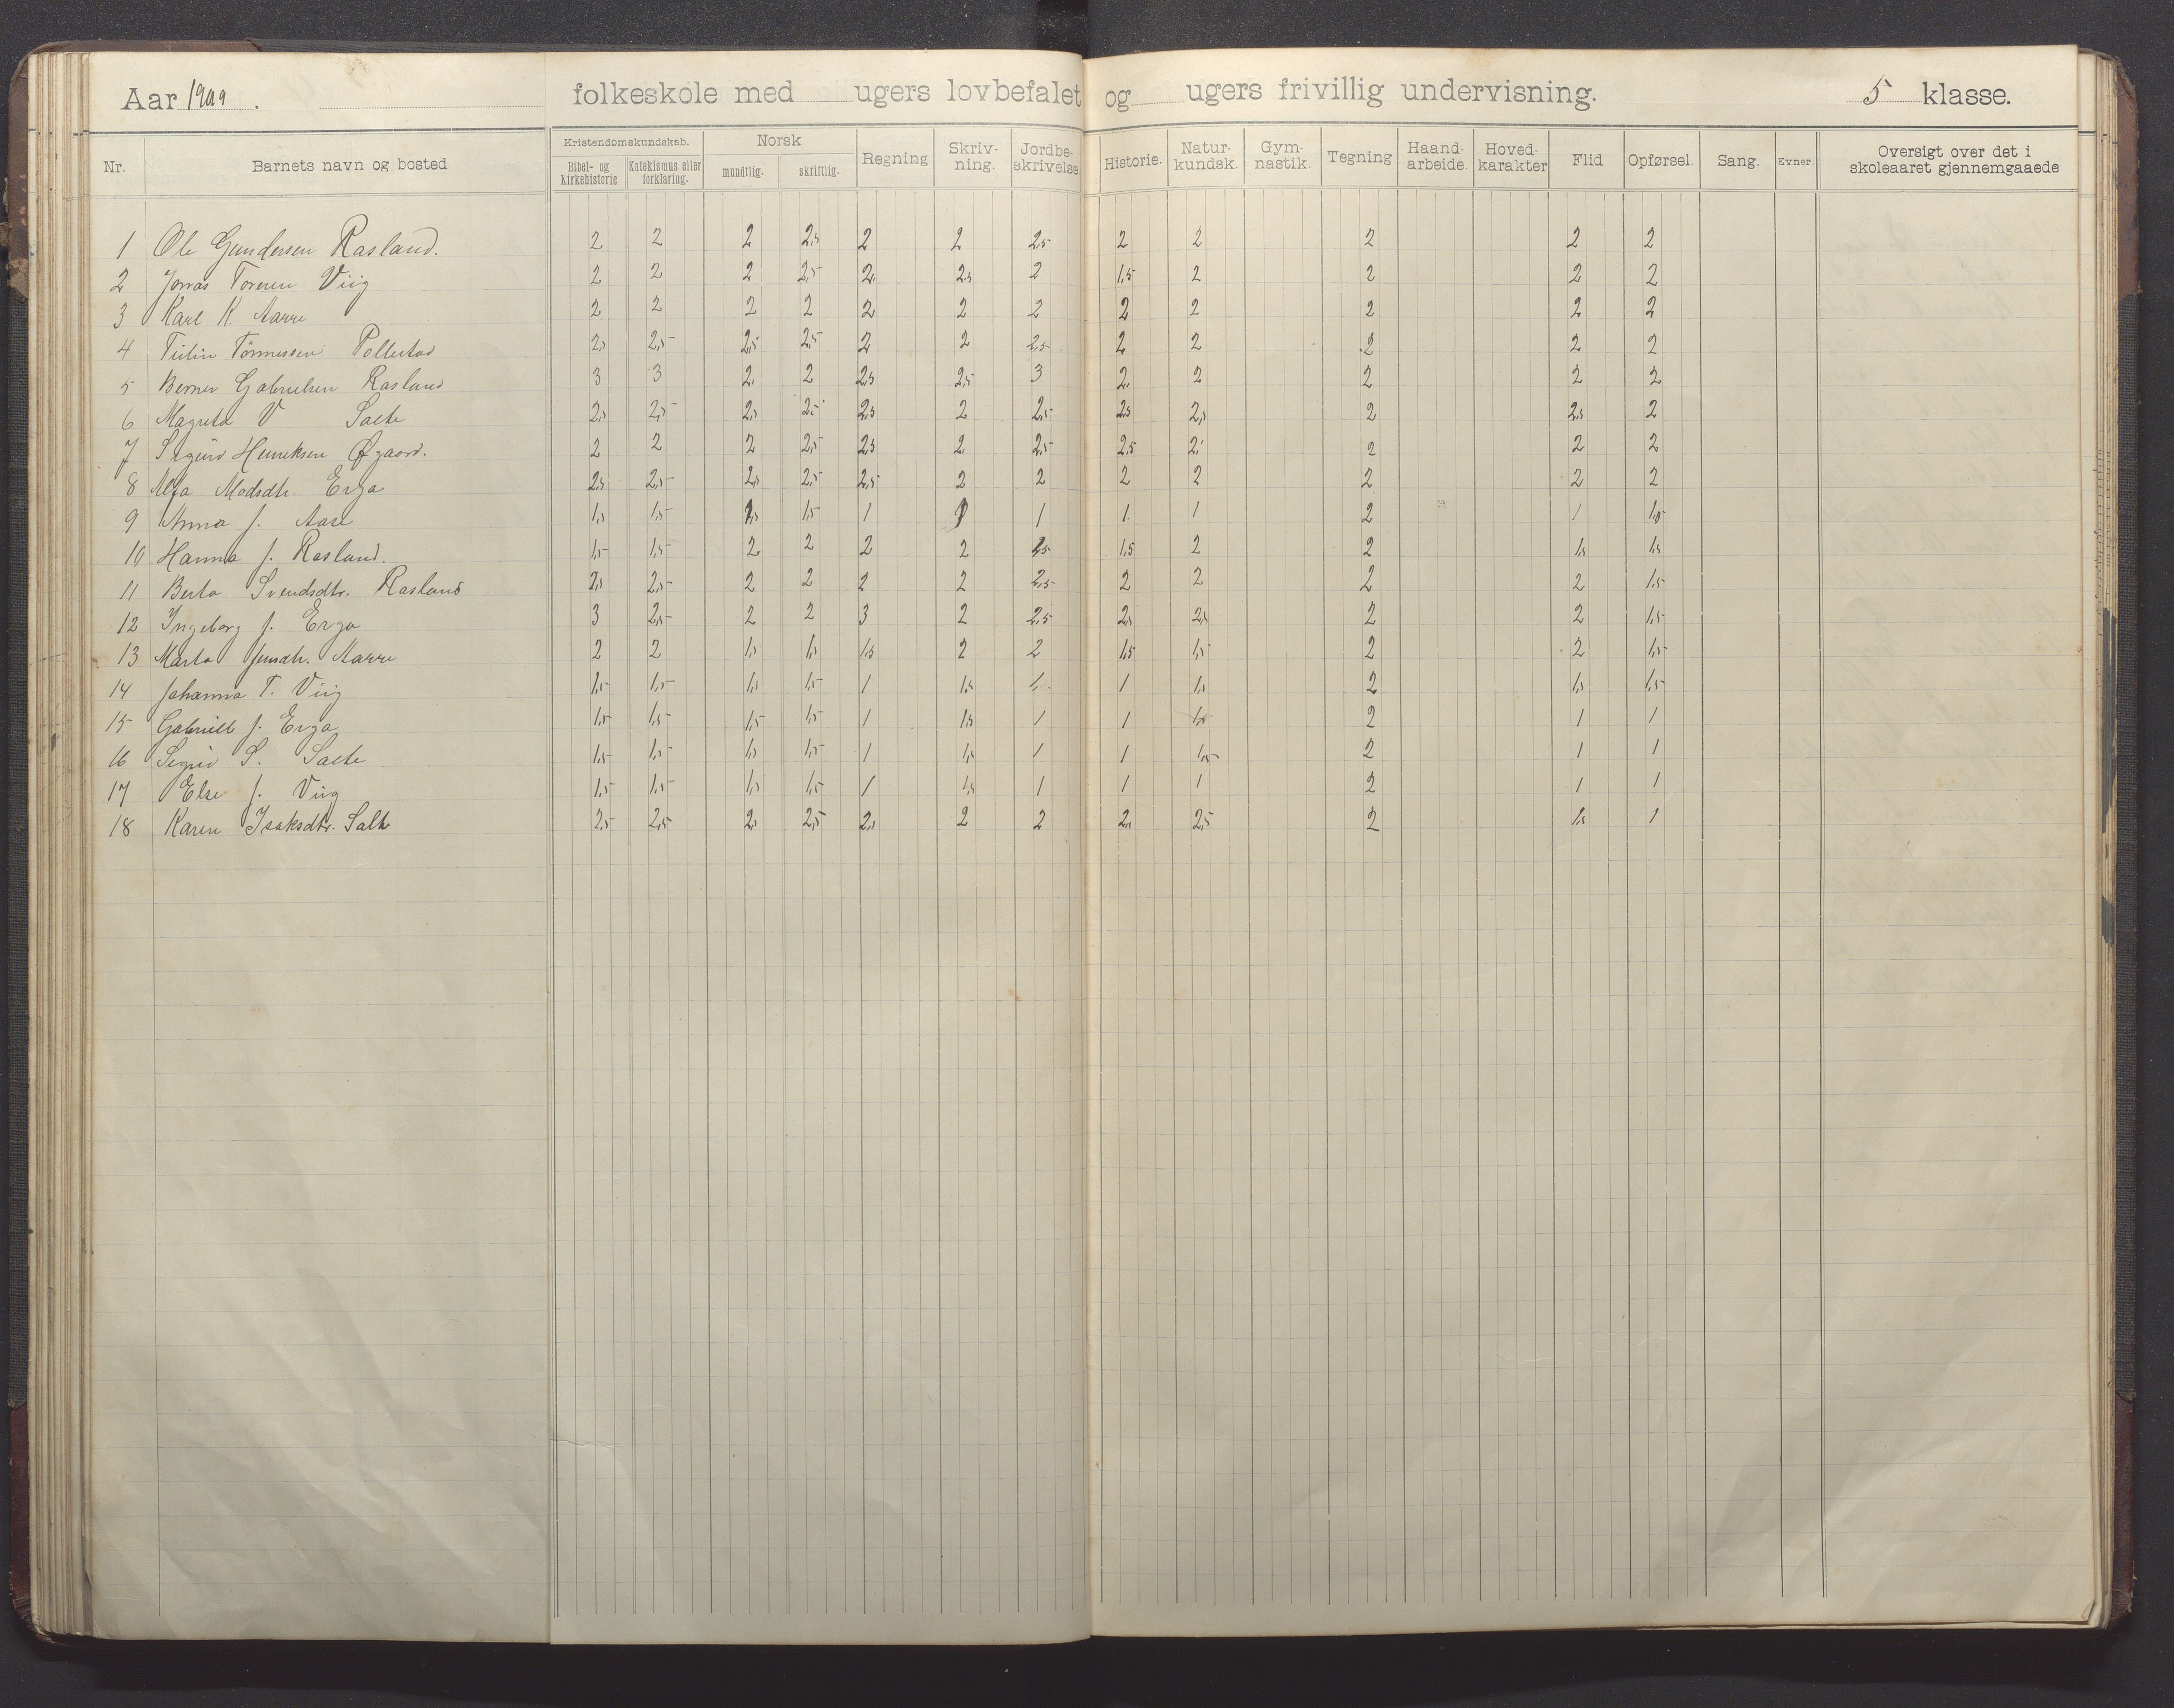 Aar 1909. folkeskole med ugers lovbefalet og ugers frivillig undervisning. 5 klasse.
Nr. Barnets navn og bosted Kristendomskundskab. Bibel- og Kirkehistorie Katekismus eller forklaring. Norsk mundtlig. skriftlig. Regning Skriv-ning. Jordbe-skrivelse. Historie. Natur-kundsk. Gym-nastik. Tegning Haand-arbeide. Hoved-karakter Flid Opførsel. Sang. Evner. Oversigt over det i skoleaaret gjennemgaaede
1 Ole Gundersen Rasland. 2 2 2 2,5 2 2 2,5 2 2 2 2 2
2 Jonas Toresen Viig 2 2 2 2,5 2, 2,5 2 1,5 2 2 2 2
3 Karl K. Aarre 2 2 2 2 2 2 2 2 2 2 2 2
4 Tønnessen Pollestad 2,5 2,5 2,5 2,5 2 2 2,5 2 2 2 2 2
5 Berner Gabrielsen Rasland 3 3 2, 2 2,5 2,5 3 2, 2 2 2 2
6 Magreta V Salte 2,5 2,5 2,5 2,5 2,5 2 2,5 2,5 2,5 2 2,5 2
7 Sigurd Henriksen Øgaard. 2 2 2 2,5 2,5 2, 2,5 2,5 2, 2 2 2
8 Alfa Madsdtr. Erga 2,5 2,5 2,5 2,5 2,5 2 2 2 2 2 2 2
9 Anna J. Aase 1,5 1,5 1,5 1,5 1 1 1 1 2 1 1,5
10 Hanna J. Rasland. 1,5 1,5 2 2 2 2 2,5 1,5 2 2 1,5 1,5
11 Berta Svendsdtr. Rasland 2,5 2,5 2 2 2 2 2,5 2 2 2 2 1,5
12 Ingeborg J. Erga 3 2,5 2 2 3 2 2,5 2,5 2,5 2 2 1,5
13 Marta Jensdtr. Aarre 2 2 1,5 1,5 1,5 2 2 1,5 1,5 2 2 1,5
14 Johanna T. Viig 1,5 1,5 1,5 1,5 1 1,5 1, 1 1,5 2 1,5 1,5
15 Gabriell J. Erga 1,5 1,5 1,5 1,5 1 1,5 1 1 1,5 2 1 1
16 Sigrid S. Salte 1,5 1,5 1,5 1,5 1 1,5 1 1 1,5 2 1 1
17 Else J. Viig 1,5 1,5 1,5 1,5 1 1,5 1 1 1 2 1 1
18 Karen Isaksdtr. Salte 2,5 2,5 2,5 2,5 2,5 2 2 2,5 2,5 2 1,5 1